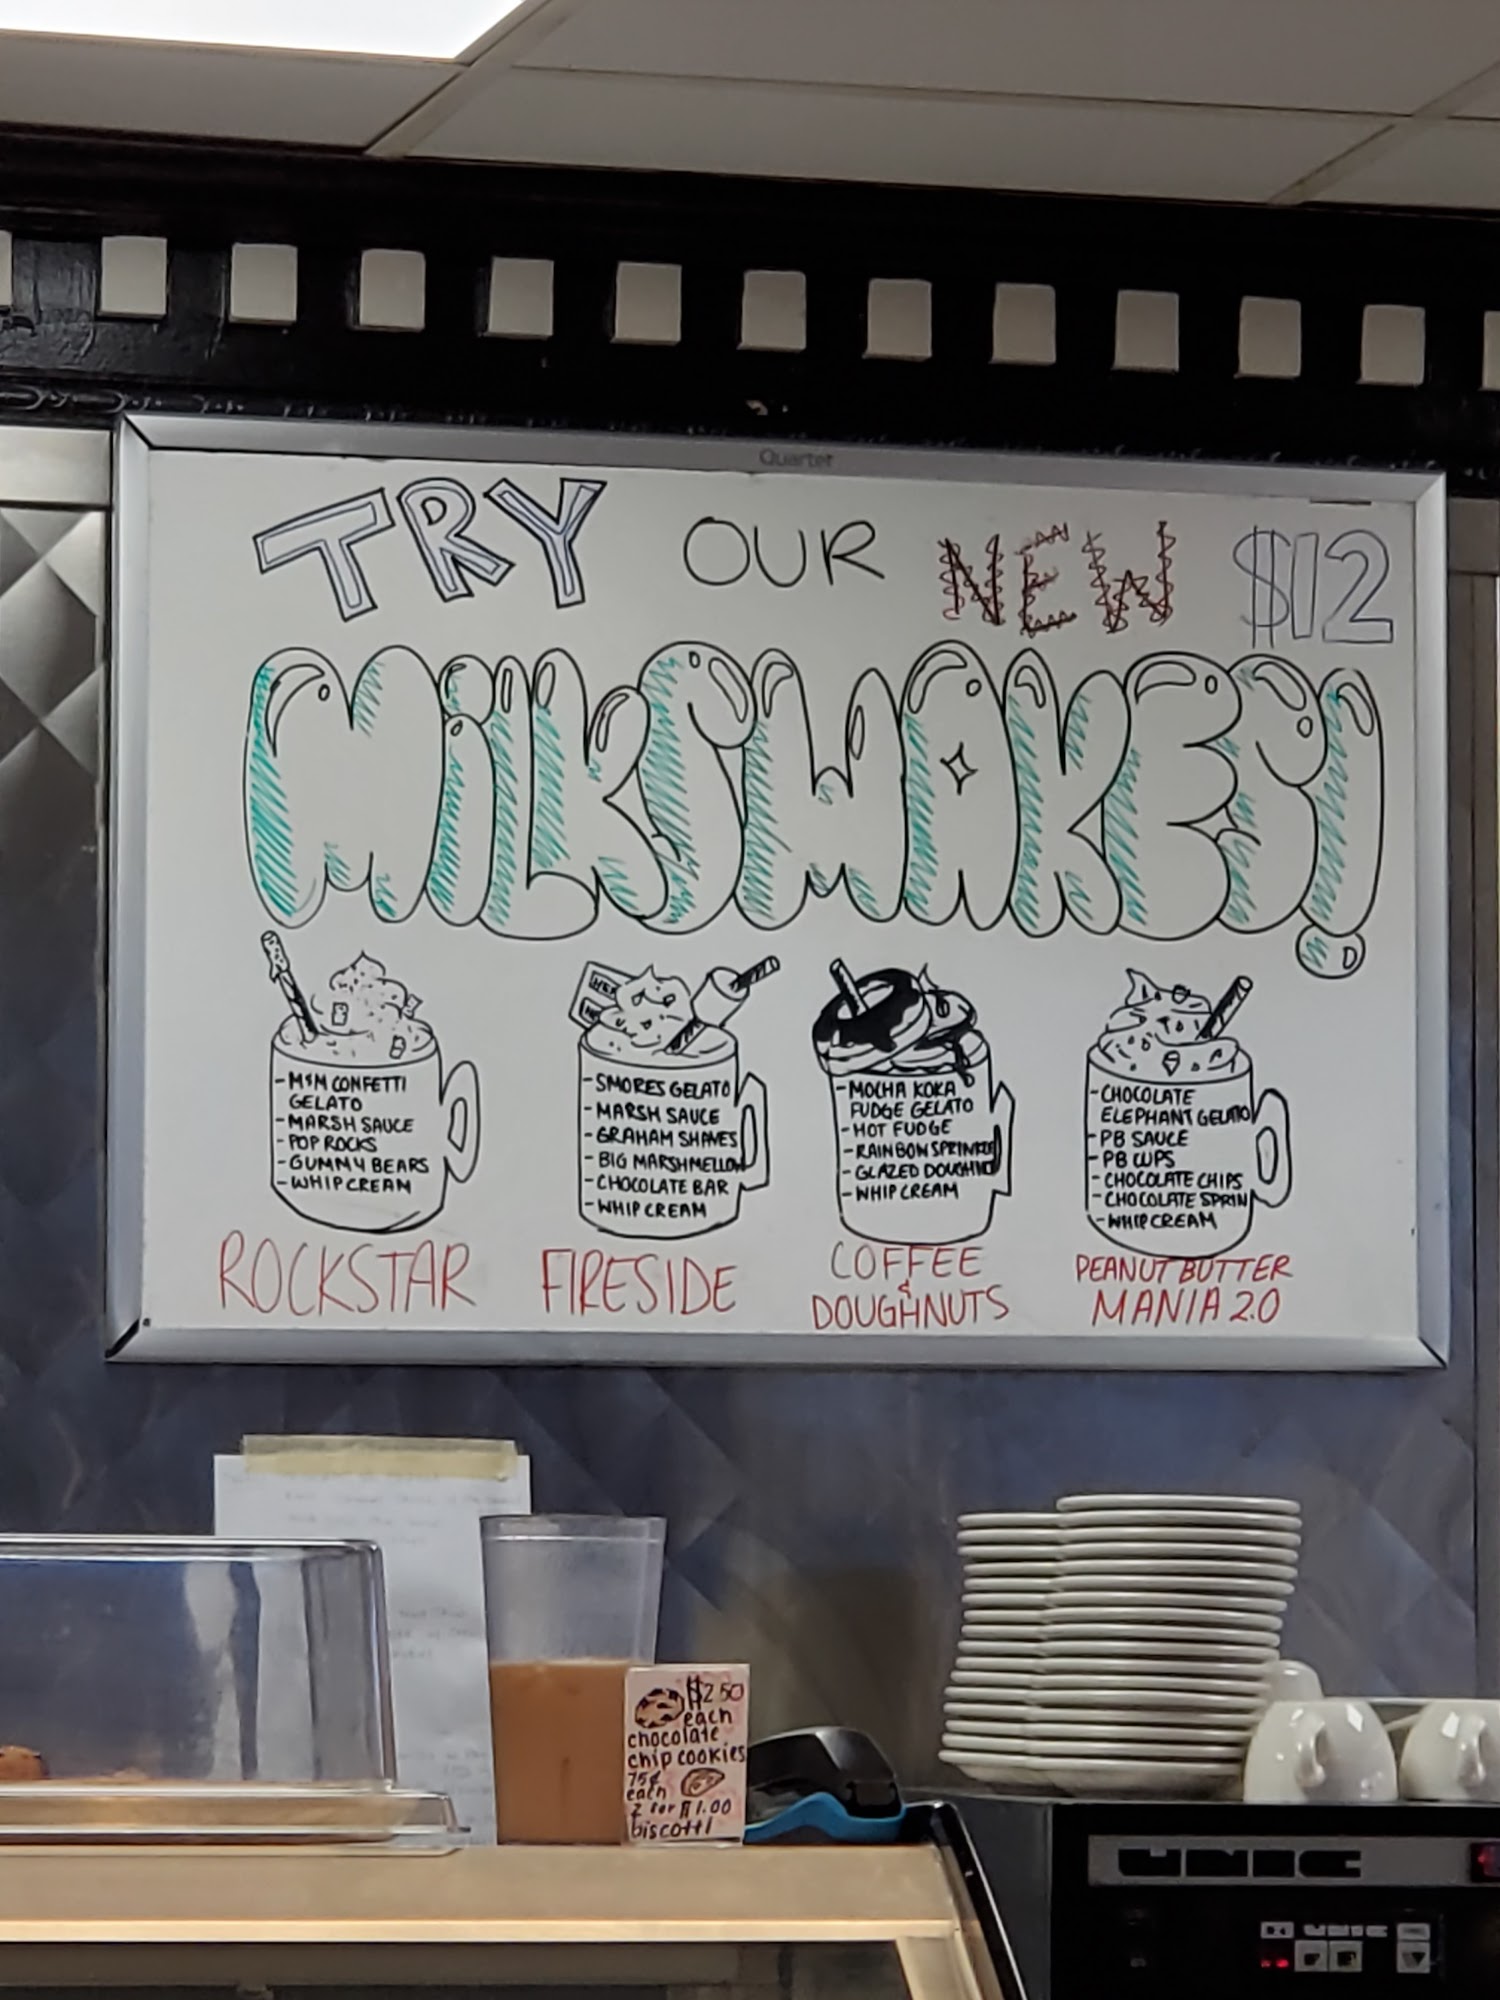 Quartet
TRY OUR NEW $12
MiLKSWAKES!
- M&M CONFETTI
GELATO
- MARSH SAUCE
- POP ROCKS
- GUMMY BEARS
- WHIP CREAM
ROCKSTAR
- SMORES GELATO
- MARSH SAUCE
- GRAHAM SHAVES
- BIG MARSHMELLOW
- CHOCOLATE BAR
- WHIP CREAM
FIRESIDE
- MOCHA KOKA
FUDGE GELATO
- HOT FUDGE
- RAINBOW SPRINKLE
- GLAZED DOUGHNUT
- WHIP CREAM
COFFEE
&
DOUGHNUTS
- CHOCOLATE
ELEPHANT GELATO
- PB SAUCE
- PB CUPS
- CHOCOLATE CHIPS
- CHOCOLATE SPRIN
- WHIP CREAM
PEANUT BUTTER
MANIA 2.0
$2.50
each
chocolate
chip cookies
75¢
each
2 for $1.00
biscotti
UNIC
UNIC